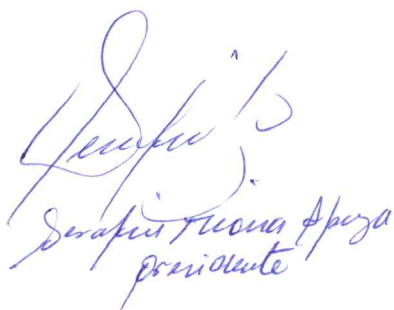 Serafin
Serafin Ticona Apaza
presidente